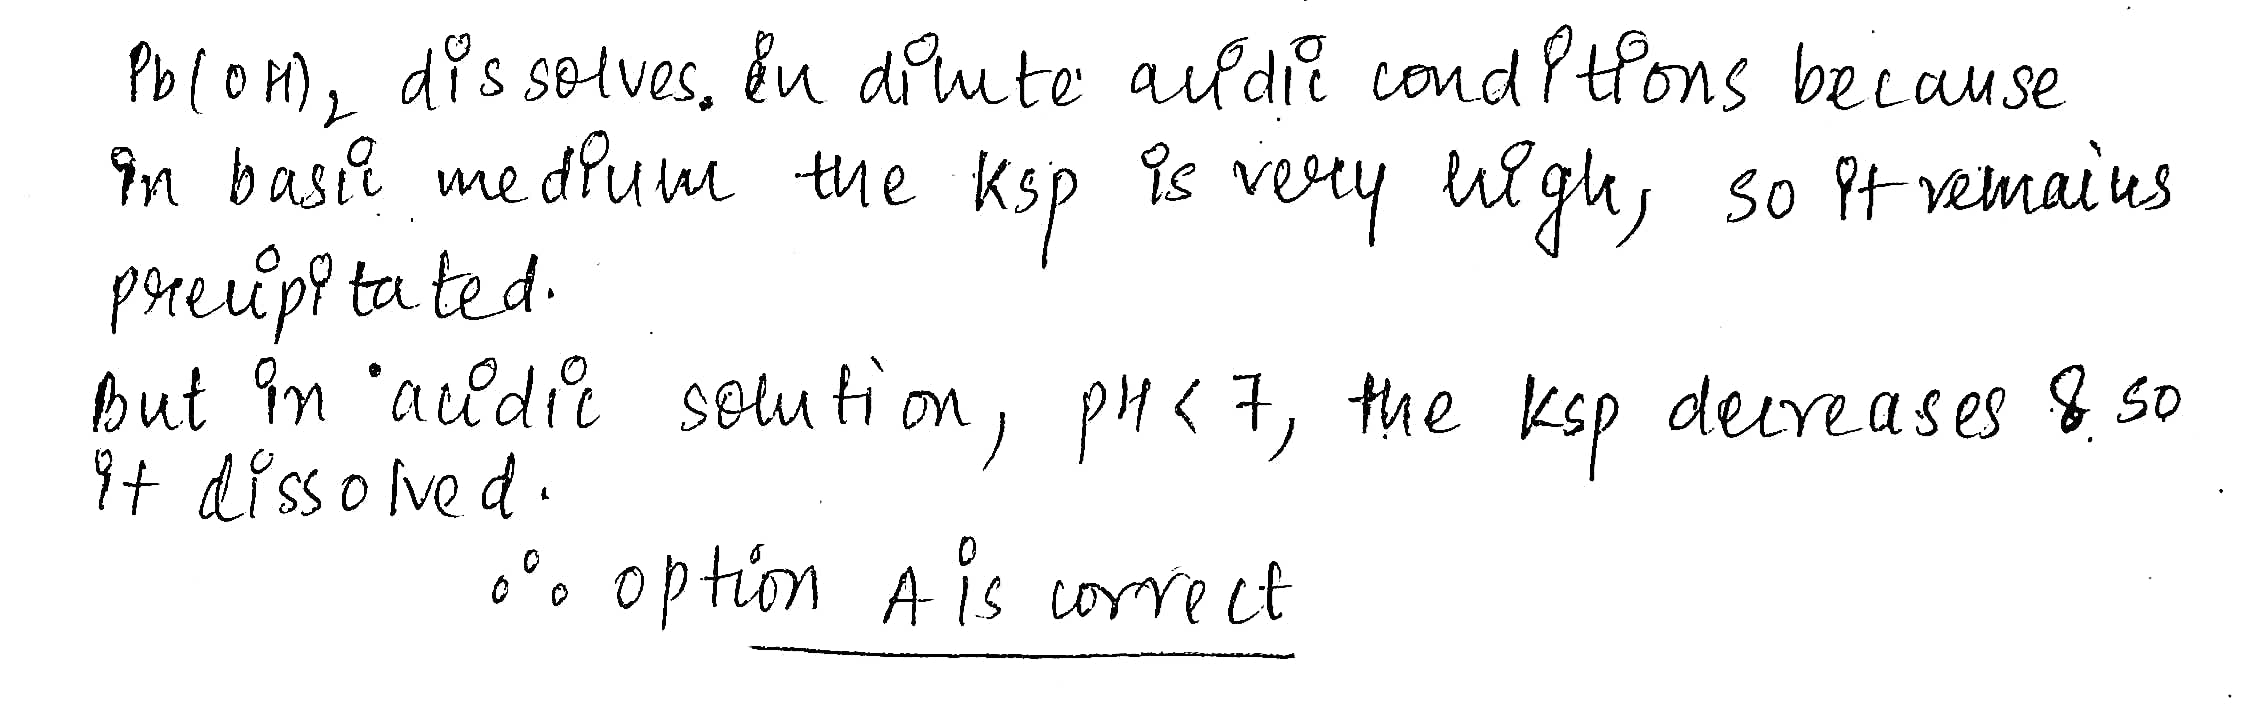 Pb(OH)₂ dissolves. in dilute acidic conditions because
in basic medium the Ksp is very high, so it remains
precipitated.
But in acidic solution, pH < 7, the Ksp decreases & so
it dissolved.
∴ option A is correct